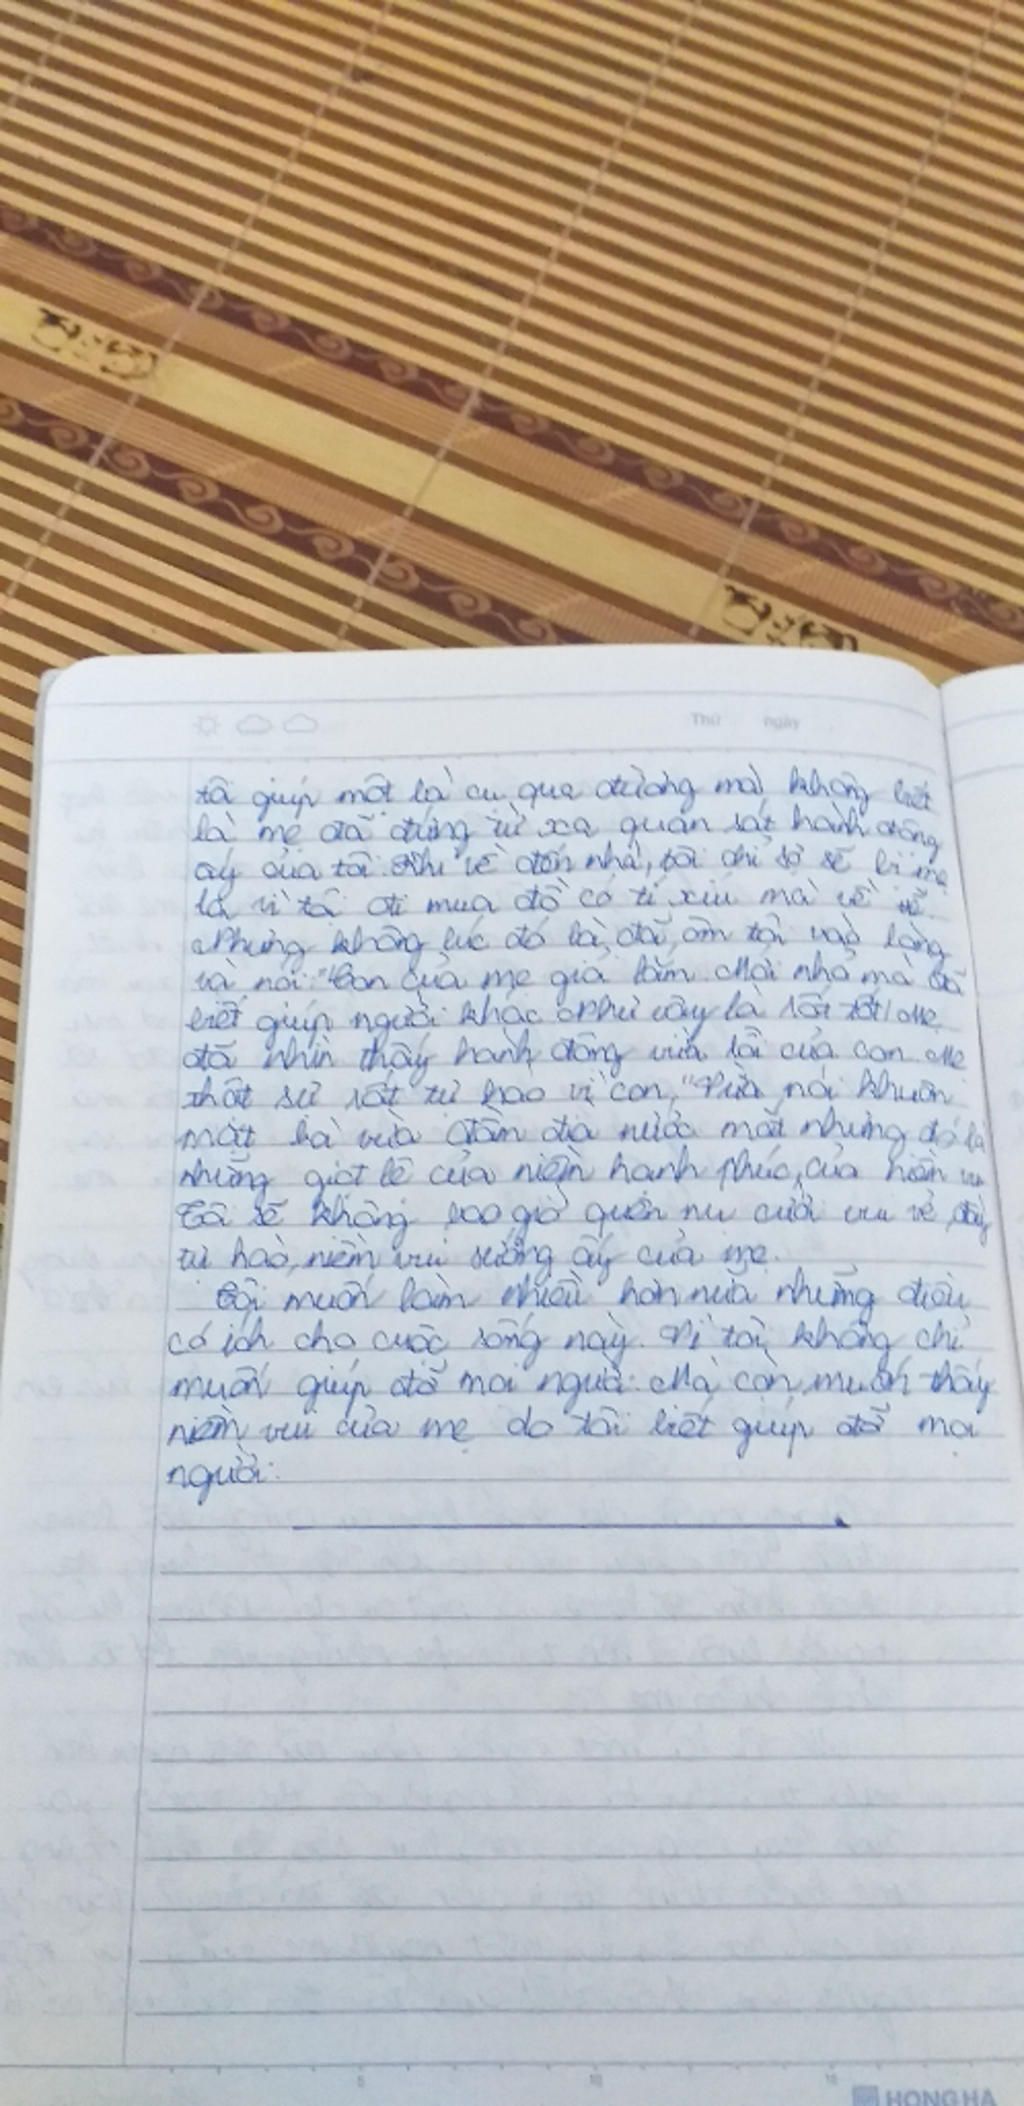 Thứ ngày
tôi giúp một bà cụ qua đường mà không biết
là mẹ đã đứng từ xa quan sát hành động
ấy của tôi. Khi về đến nhà, tôi chỉ sợ sẽ bị mẹ
la vì tôi đi mua đồ có tí xíu mà về trễ.
Nhưng không, lúc đó bà đã ôm tôi vào lòng
và nói: "Con của mẹ giỏi lắm. Mới nhỏ mà đã
biết giúp người khác như vậy là rất tốt! Mẹ
đã nhìn thấy hành động vừa rồi của con. Mẹ
thật sự rất tự hào vì con." Vừa nói khuôn
mặt bà vừa đầm đìa nước mắt nhưng đó là
những giọt lệ của niềm hạnh phúc, của niềm vui
Tôi sẽ không bao giờ quên nụ cười vui vẻ, đầy
tự hào, niềm vui sướng ấy của mẹ.
Tôi muốn làm nhiều hơn nữa những điều
có ích cho cuộc sống này. Vì tôi không chỉ
muốn giúp đỡ mọi người. Mà còn muốn thấy
niềm vui của mẹ do tôi biết giúp đỡ mọi
người.
5 10 15
HONG HA